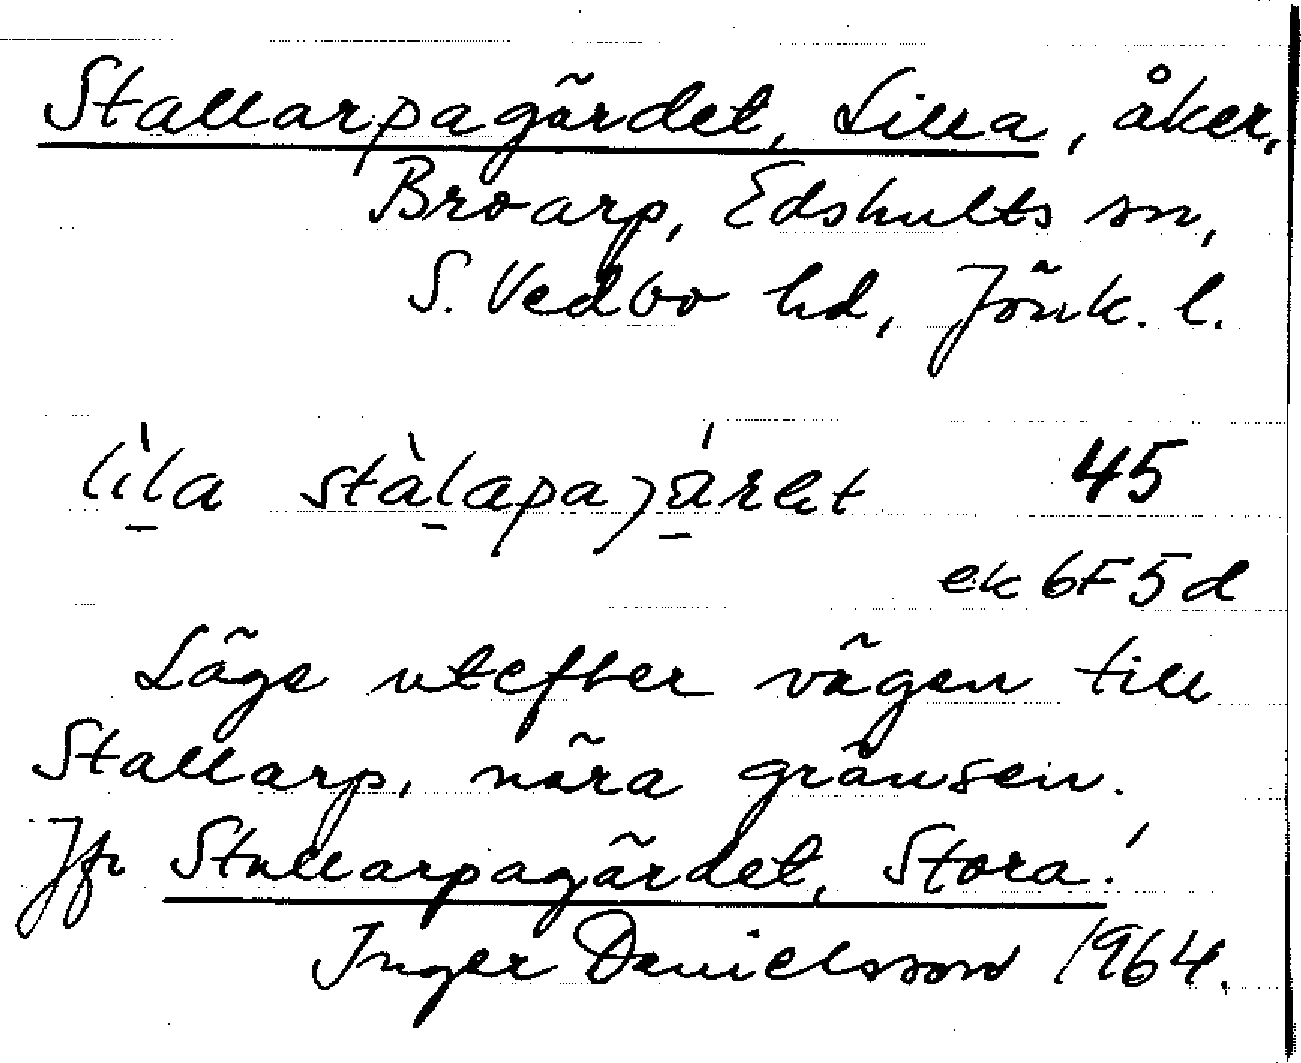 Stallarpagärdet, Lilla, åker,
Broarp, Edshults sn,
S. Vedbo hd, Jönk. l.
lìla stàlapajä́ret 45
ek 6F5d
Läge utefter vägen till
Stallarp, nära gränsen.
Jfr Stallarpagärdet, Stora!
Inger Danielsson 1964.